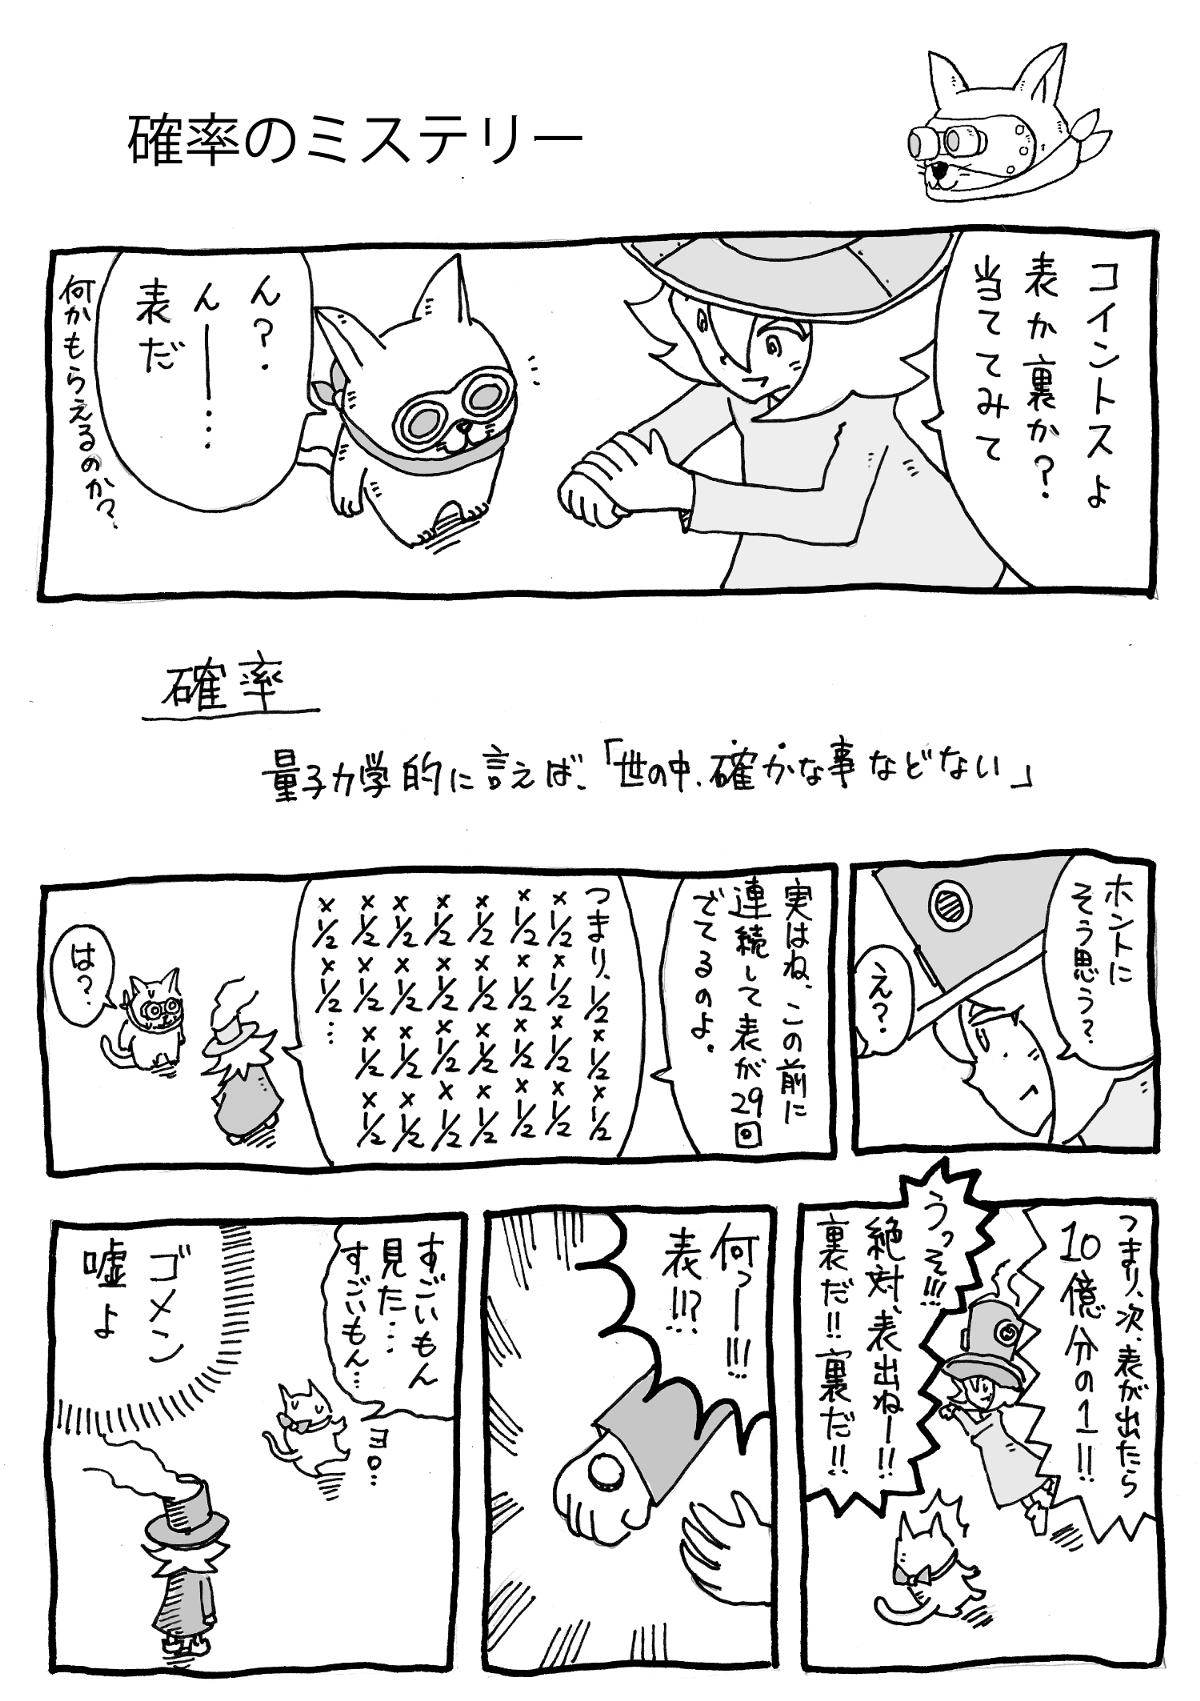 確率のミステリー
コイントスよ
表か裏か?
当ててみて
ん?
んー…
表だ
何かもらえるのか?
確率
量子力学的に言えば、「世の中、確かな事などない」
ホントに
そう思う?
え?
実はね、この前に
連続して表が29回
でてるのよ。
つまり、1/2×1/2×1/2
×1/2×1/2×1/2×1/2
×1/2×1/2×1/2×1/2
×1/2×1/2×1/2×1/2
×1/2×1/2×1/2×1/2
×1/2×1/2×1/2×1/2
×1/2×1/2×1/2×1/2
×1/2×1/2…
は?
つまり、次、表が出たら
10億分の1!!
うっそ!!!
絶対、表出ねー!!
裏だ!!裏だ!!
何っー!!!
表!!?
すごいもん
見た…
すごいもん…
ヨロ…
ゴメン
嘘よ